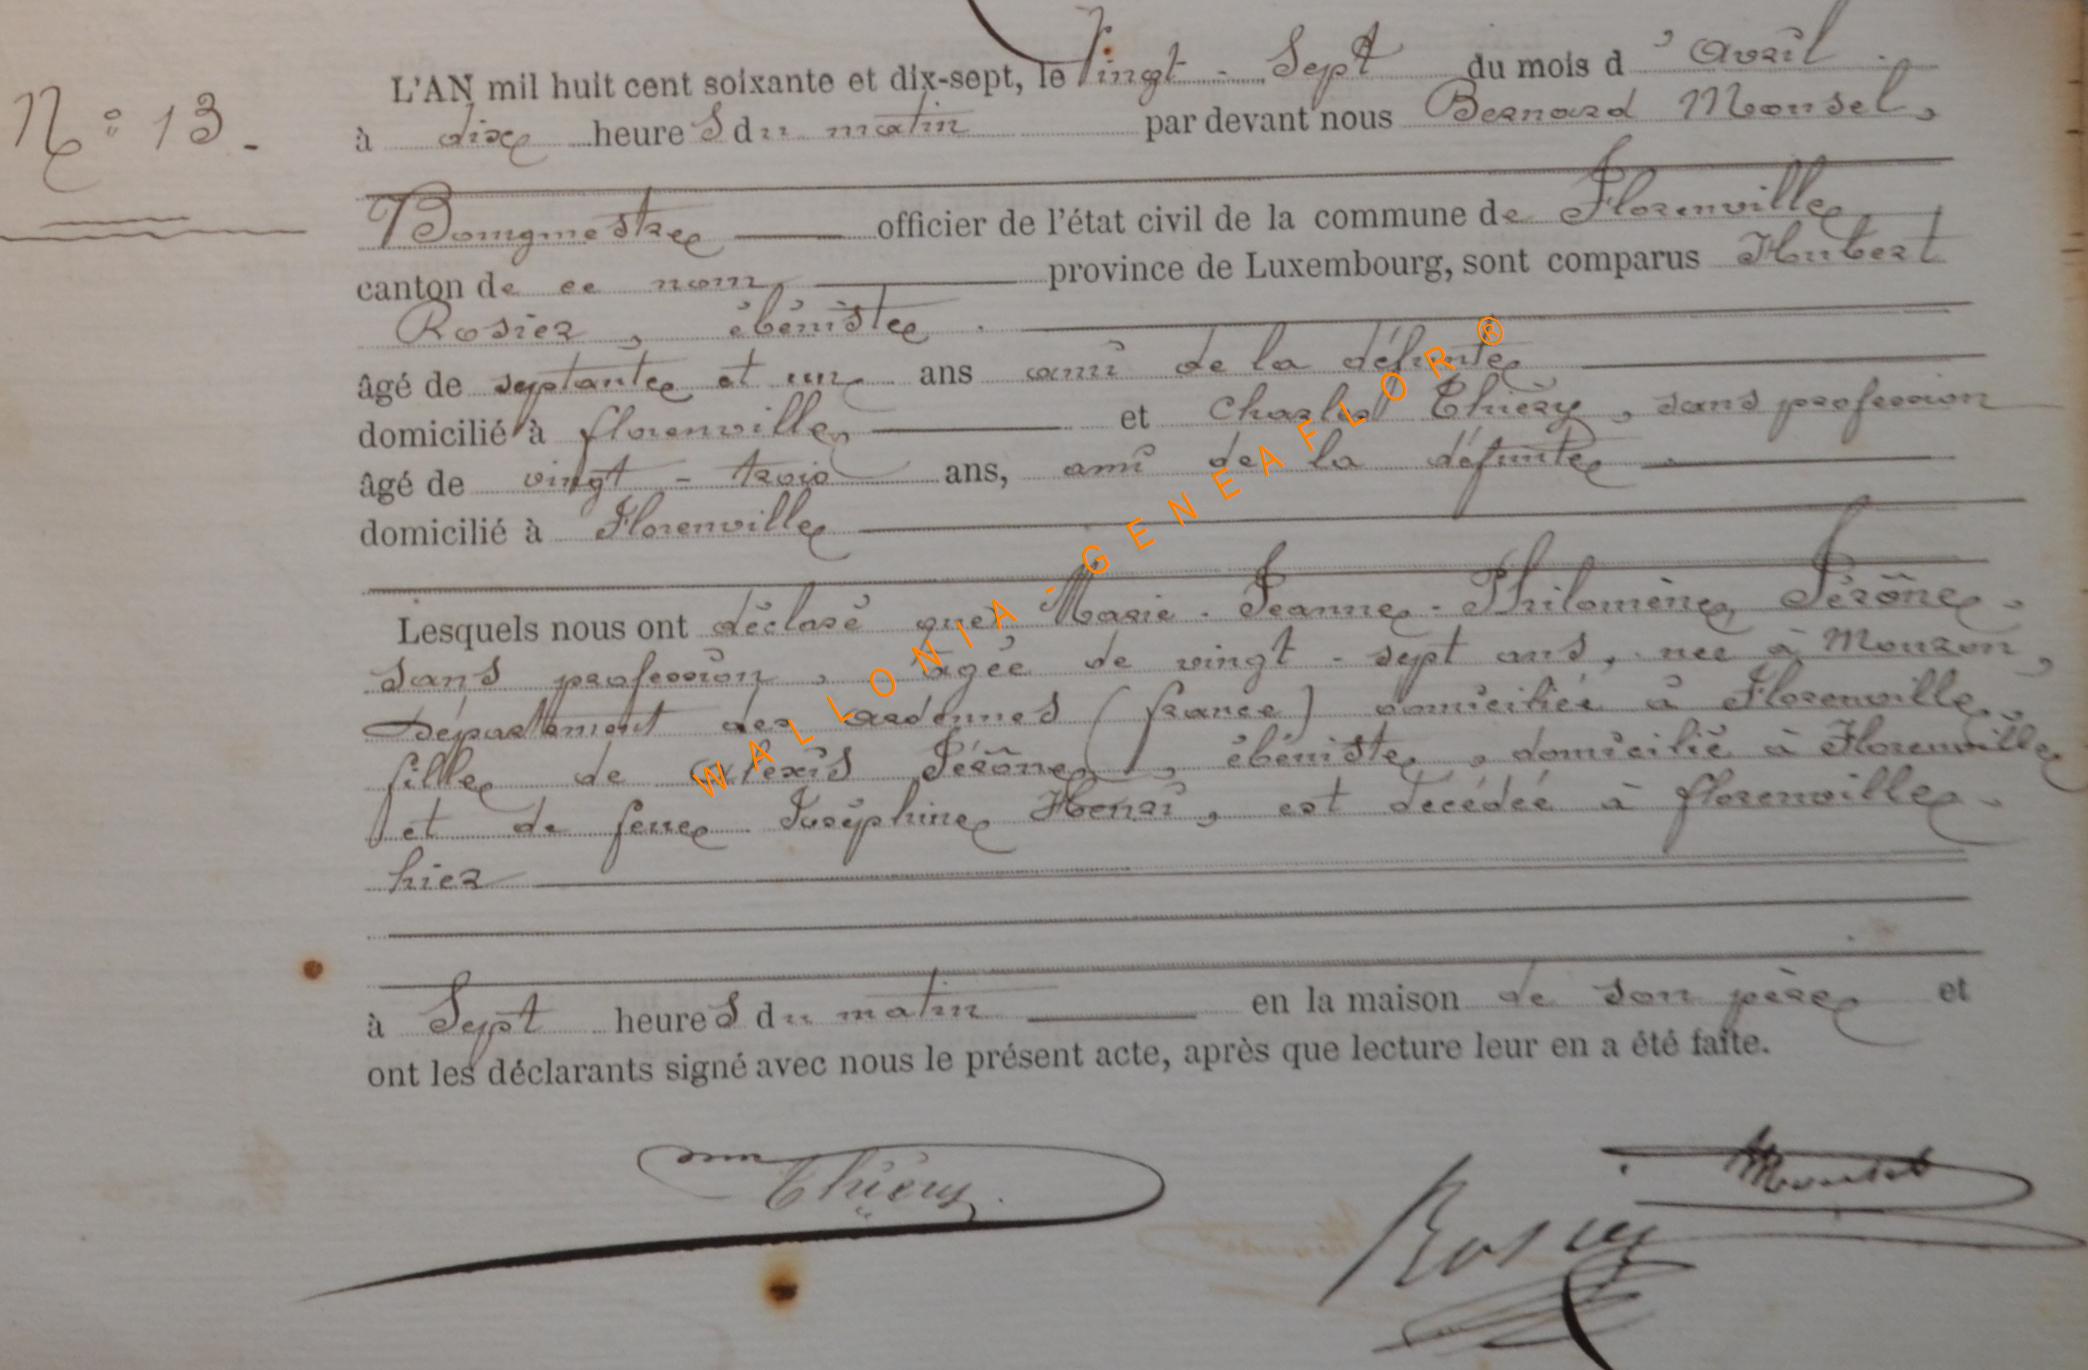 N° 13.
L'AN mil huit cent soixante et dix-sept, le Vingt - Sept du mois d'avril
à dix heures du matin par devant nous Bernard Monsel,
Bourgmestre officier de l'état civil de la commune de Florenville
canton de ce nom, province de Luxembourg, sont comparus Hubert
Rosier, ébéniste.
âgé de septante et un ans ami de la défunte
domicilié à florenville et Charles Thiéry, sans profession
âgé de vingt - trois ans, ami de la défunte
domicilié à Florenville
Lesquels nous ont déclaré que Marie - Jeanne - Philomène, Jérôme,
sans profession, âgée de vingt - sept ans, née à Mouzon,
Département des ardennes (france) domiciliée à Florenville,
fille de Alexis Jérôme, ébéniste, domicilié à Florenville
et de feue Joséphine Henri, est décédée à florenville
hier
à Sept heures du matin en la maison de son père et
ont les déclarants signé avec nous le présent acte, après que lecture leur en a été faite.
Thiéry Monsel
Rosier
WALLONIA - GENEAFLOR ®